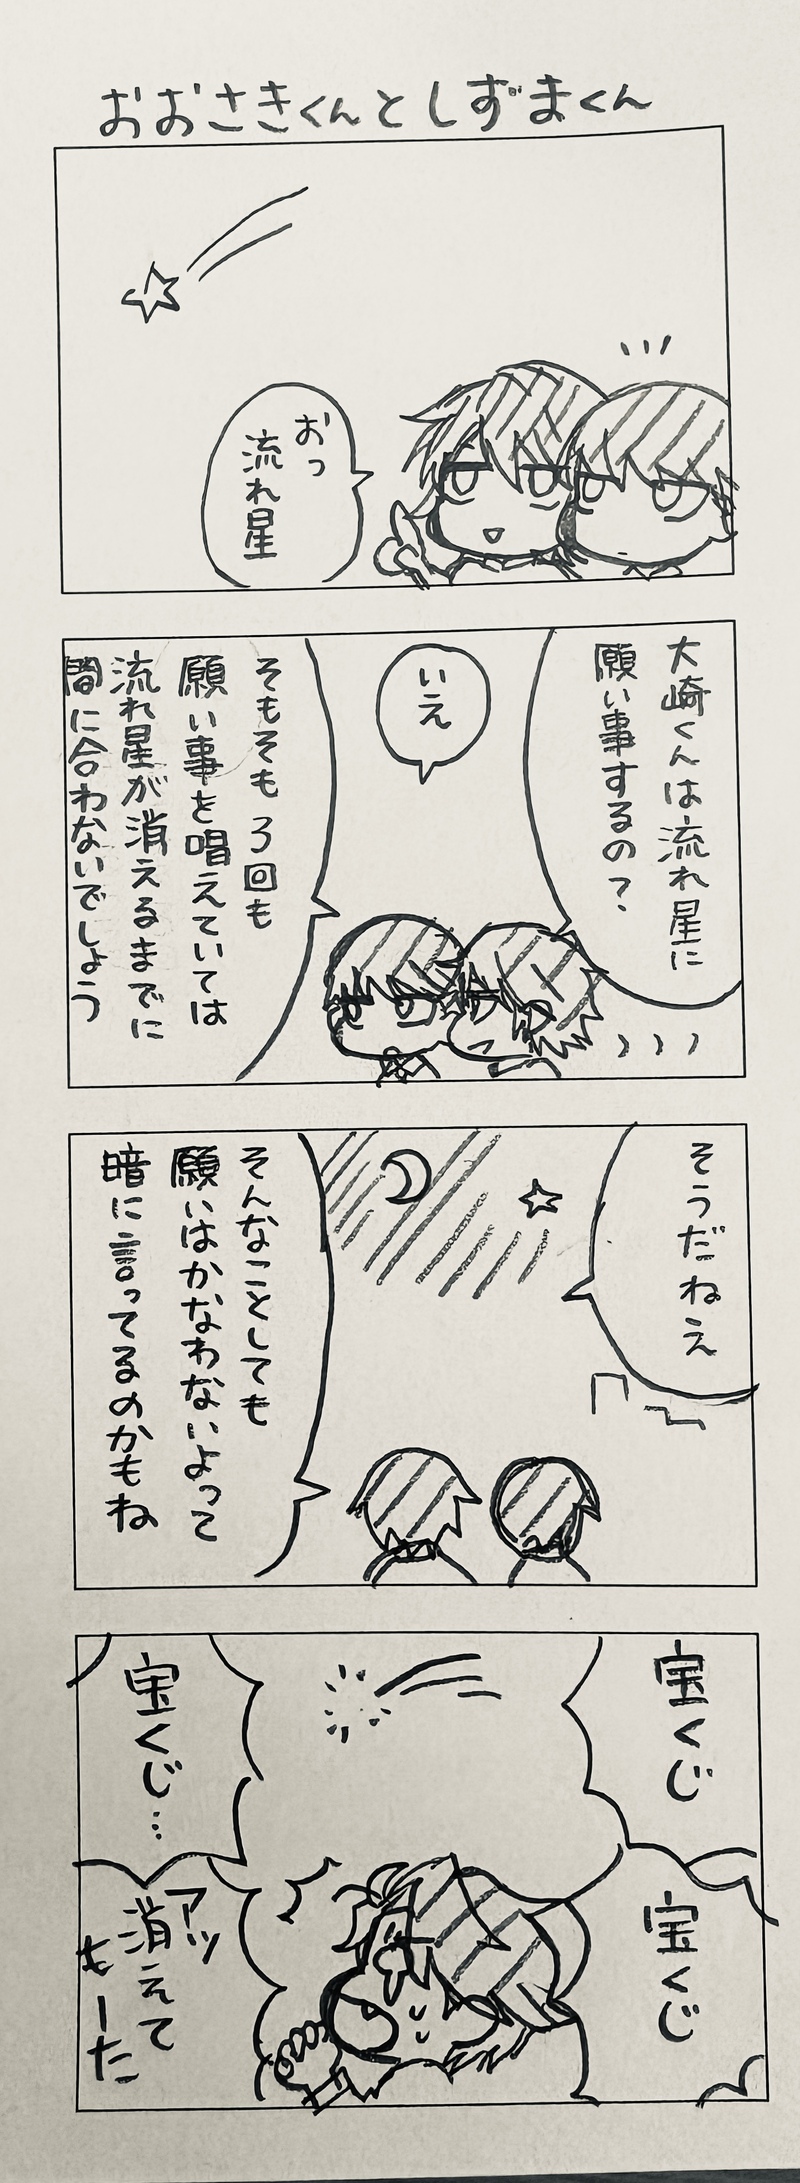 おおさきくんとしずまくん
おっ
流れ星
大崎くんは流れ星に
願い事するの?
いえ
そもそも3回も
願い事を唱えていては
流れ星が消えるまでに
間に合わないでしょう
そうだねえ
そんなことしても
願いはかなわないよって
暗に言ってるのかもね
宝くじ
宝くじ
宝くじ…
アッ
消えて
もーた